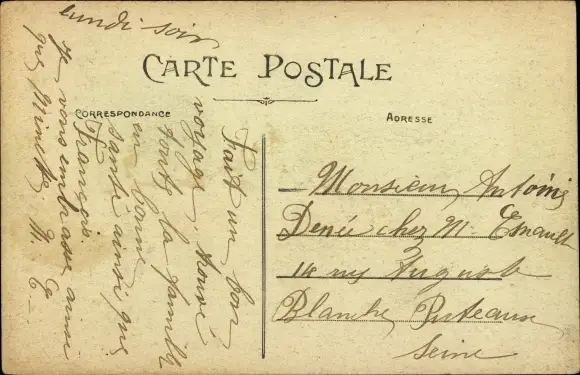 lundi soir
CARTE POSTALE
CORRESPONDANCE
ADRESSE
Fait un bon
voyage, trouvé
toute la famille
en bonne
santé ainsi que
François.
Je vous embrasse ainsi
que Minette M. E.
Monsieur Antoine
Denée chez M. Esnault
14 rue Auguste
Blanche Puteaux
Seine